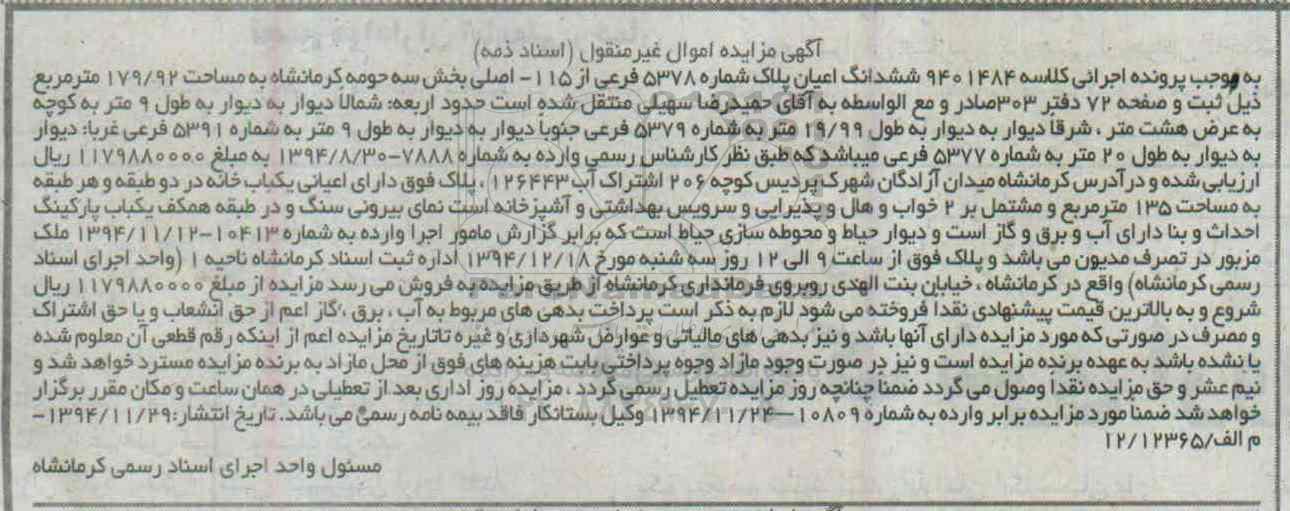 آگهی مزایده اموال غیرمنقول (اسناد ذمه)
به موجب پرونده اجرائی کلاسه ۹۴۰۱۴۸۴ ششدانگ اعیان پلاک شماره ۵۳۷۸ فرعی از ۱۱۵- اصلی بخش سه حومه کرمانشاه به مساحت ۱۷۹/۹۲ مترمربع
ذیل ثبت و صفحه ۷۲ دفتر ۳۰۳صادر و مع الواسطه به آقای حمیدرضا سهیلی منتقل شده است حدود اربعه: شمالا دیوار به دیوار به طول ۹ متر به کوچه
به عرض هشت متر ، شرقا دیوار به دیوار به طول ۱۹/۹۹ متر به شماره ۵۳۷۹ فرعی جنوبا دیوار به دیوار به طول ۹ متر به شماره ۵۳۹۱ فرعی غربا: دیوار
به دیوار به طول ۲۰ متر به شماره ۵۳۷۷ فرعی میباشد که طبق نظر کارشناس رسمی وارده به شماره ۷۸۸۸-۱۳۹۴/۸/۳۰ به مبلغ ۱۱۷۹۸۸۰۰۰۰ ریال
ارزیابی شده و در آدرس کرمانشاه میدان آزادگان شهرک پردیس کوچه ۲۰۶ اشتراک آب ۱۲۶۴۴۳ ، پلاک فوق دارای اعیانی یکباب خانه در دو طبقه و هر طبقه
به مساحت ۱۳۵ مترمربع و مشتمل بر ۲ خواب و هال و پذیرایی و سرویس بهداشتی و آشپزخانه است نمای بیرونی سنگ و در طبقه همکف یکباب پارکینگ
احداث و بنا دارای آب و برق و گاز است و دیوار حیاط و محوطه سازی حیاط است که برابر گزارش مامور اجرا وارده به شماره ۱۰۴۱۳-۱۳۹۴/۱۱/۱۲ ملک
مزبور در تصرف مدیون می باشد و پلاک فوق از ساعت ۹ الی ۱۲ روز سه شنبه مورخ ۱۳۹۴/۱۲/۱۸ اداره ثبت اسناد کرمانشاه ناحیه ۱ (واحد اجرای اسناد
رسمی کرمانشاه) واقع در کرمانشاه ، خیابان بنت الهدی روبروی فرمانداری کرمانشاه از طریق مزایده به فروش می رسد مزایده از مبلغ ۱۱۷۹۸۸۰۰۰۰ ریال
شروع و به بالاترین قیمت پیشنهادی نقدا فروخته می شود لازم به ذکر است پرداخت بدهی های مربوط به آب ، برق ،گاز اعم از حق انشعاب و یا حق اشتراک
و مصرف در صورتی که مورد مزایده دارای آنها باشد و نیز بدهی های مالیاتی و عوارض شهرداری و غیره تاتاریخ مزایده اعم از اینکه رقم قطعی آن معلوم شده
یا نشده باشد به عهده برنده مزایده است و نیز در صورت وجود مازاد وجوه پرداختی بابت هزینه های فوق از محل مازاد به برنده مزایده مسترد خواهد شد و
نیم عشر و حق مزایده نقدا وصول می گردد ضمنا چنانچه روز مزایده تعطیل رسمی گردد ، مزایده روز اداری بعد از تعطیلی در همان ساعت و مکان مقرر برگزار
خواهد شد ضمنا مورد مزایده برابر وارده به شماره ۱۰۸۰۹—۱۳۹۴/۱۱/۲۴ وکیل بستانکار فاقد بیمه نامه رسمی می باشد. تاریخ انتشار:۱۳۹۴/۱۱/۲۹-
م الف/۱۲/۱۲۳۶۵
مسئول واحد اجرای اسناد رسمی کرمانشاه